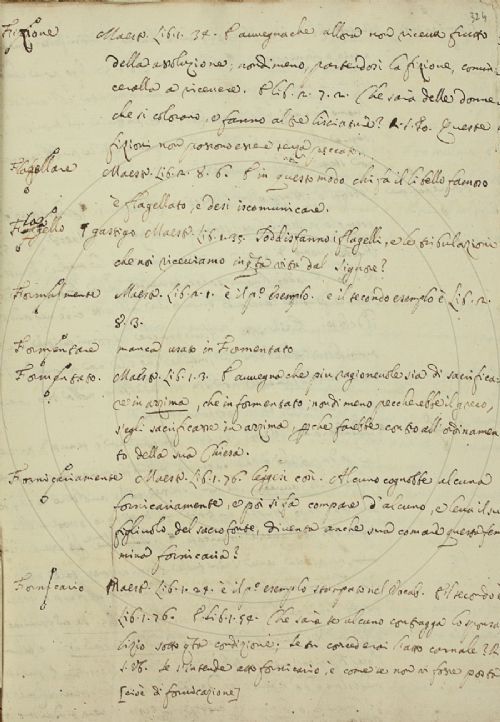 324
Fizione Maest. Lib. 1. 34. E avvegnachè allora non riceva frutto
della assoluzione; nondimeno, partendosi la fizione, comin
cerallo a ricevere. E lib. 2. 7. 2. Che sarà delle donne
che si colorano, o fanno altre lisciature? Queste
fizioni non possono essere senza peccato.
Flagellare Maest. Lib. 2. 8. 6. E in questo modo chi fa il libello famoso
è flagellato, e desi iscomunicare.
Flagello gastigo Maest. Lib. 1. 33. Soddisfanno i flagelli, e le tribulazioni
che noi riceviamo in qta vita dal Signore?
Formalmente Maest. Lib. 2. 1. è il po esemplo. e il secondo esemplo è Lib. 2.
8. 3.
Formentare manca usato in Formentato
Formentato. Maest. Lib. 1. 3. E avvegnachè più ragionevole sia di sacrifica
re in azzima, che in formentato; nondimeno peccherebbe il greco,
s'egli sacrificasse in azzima, pche farebbe contro all'ordinamen
to della sua Chiesa.
Fornicariamente Maest. Lib. 1. 76. leggesi così. Alcuno cognobbe alcuna
fornicariamente, e poi si fa compare d'alcuno, e leva il su
figliuolo del sacro fonte, diventa anche sua comare questa fem
mina fornicaria?
Fornicario Maest. Lib. 1. 24. è il po esemplo stampato nel Vocab. Il secondo è
Lib. 1. 76. E Lib. 1. 54. Che sarà se alcuno contragga lo sponsa
lizio sotto qta condizione; Se tu concederai l'atto carnale?
Se s'intende atto fornicario, è come se non vi fosse posta
[cioè di fornicazione]